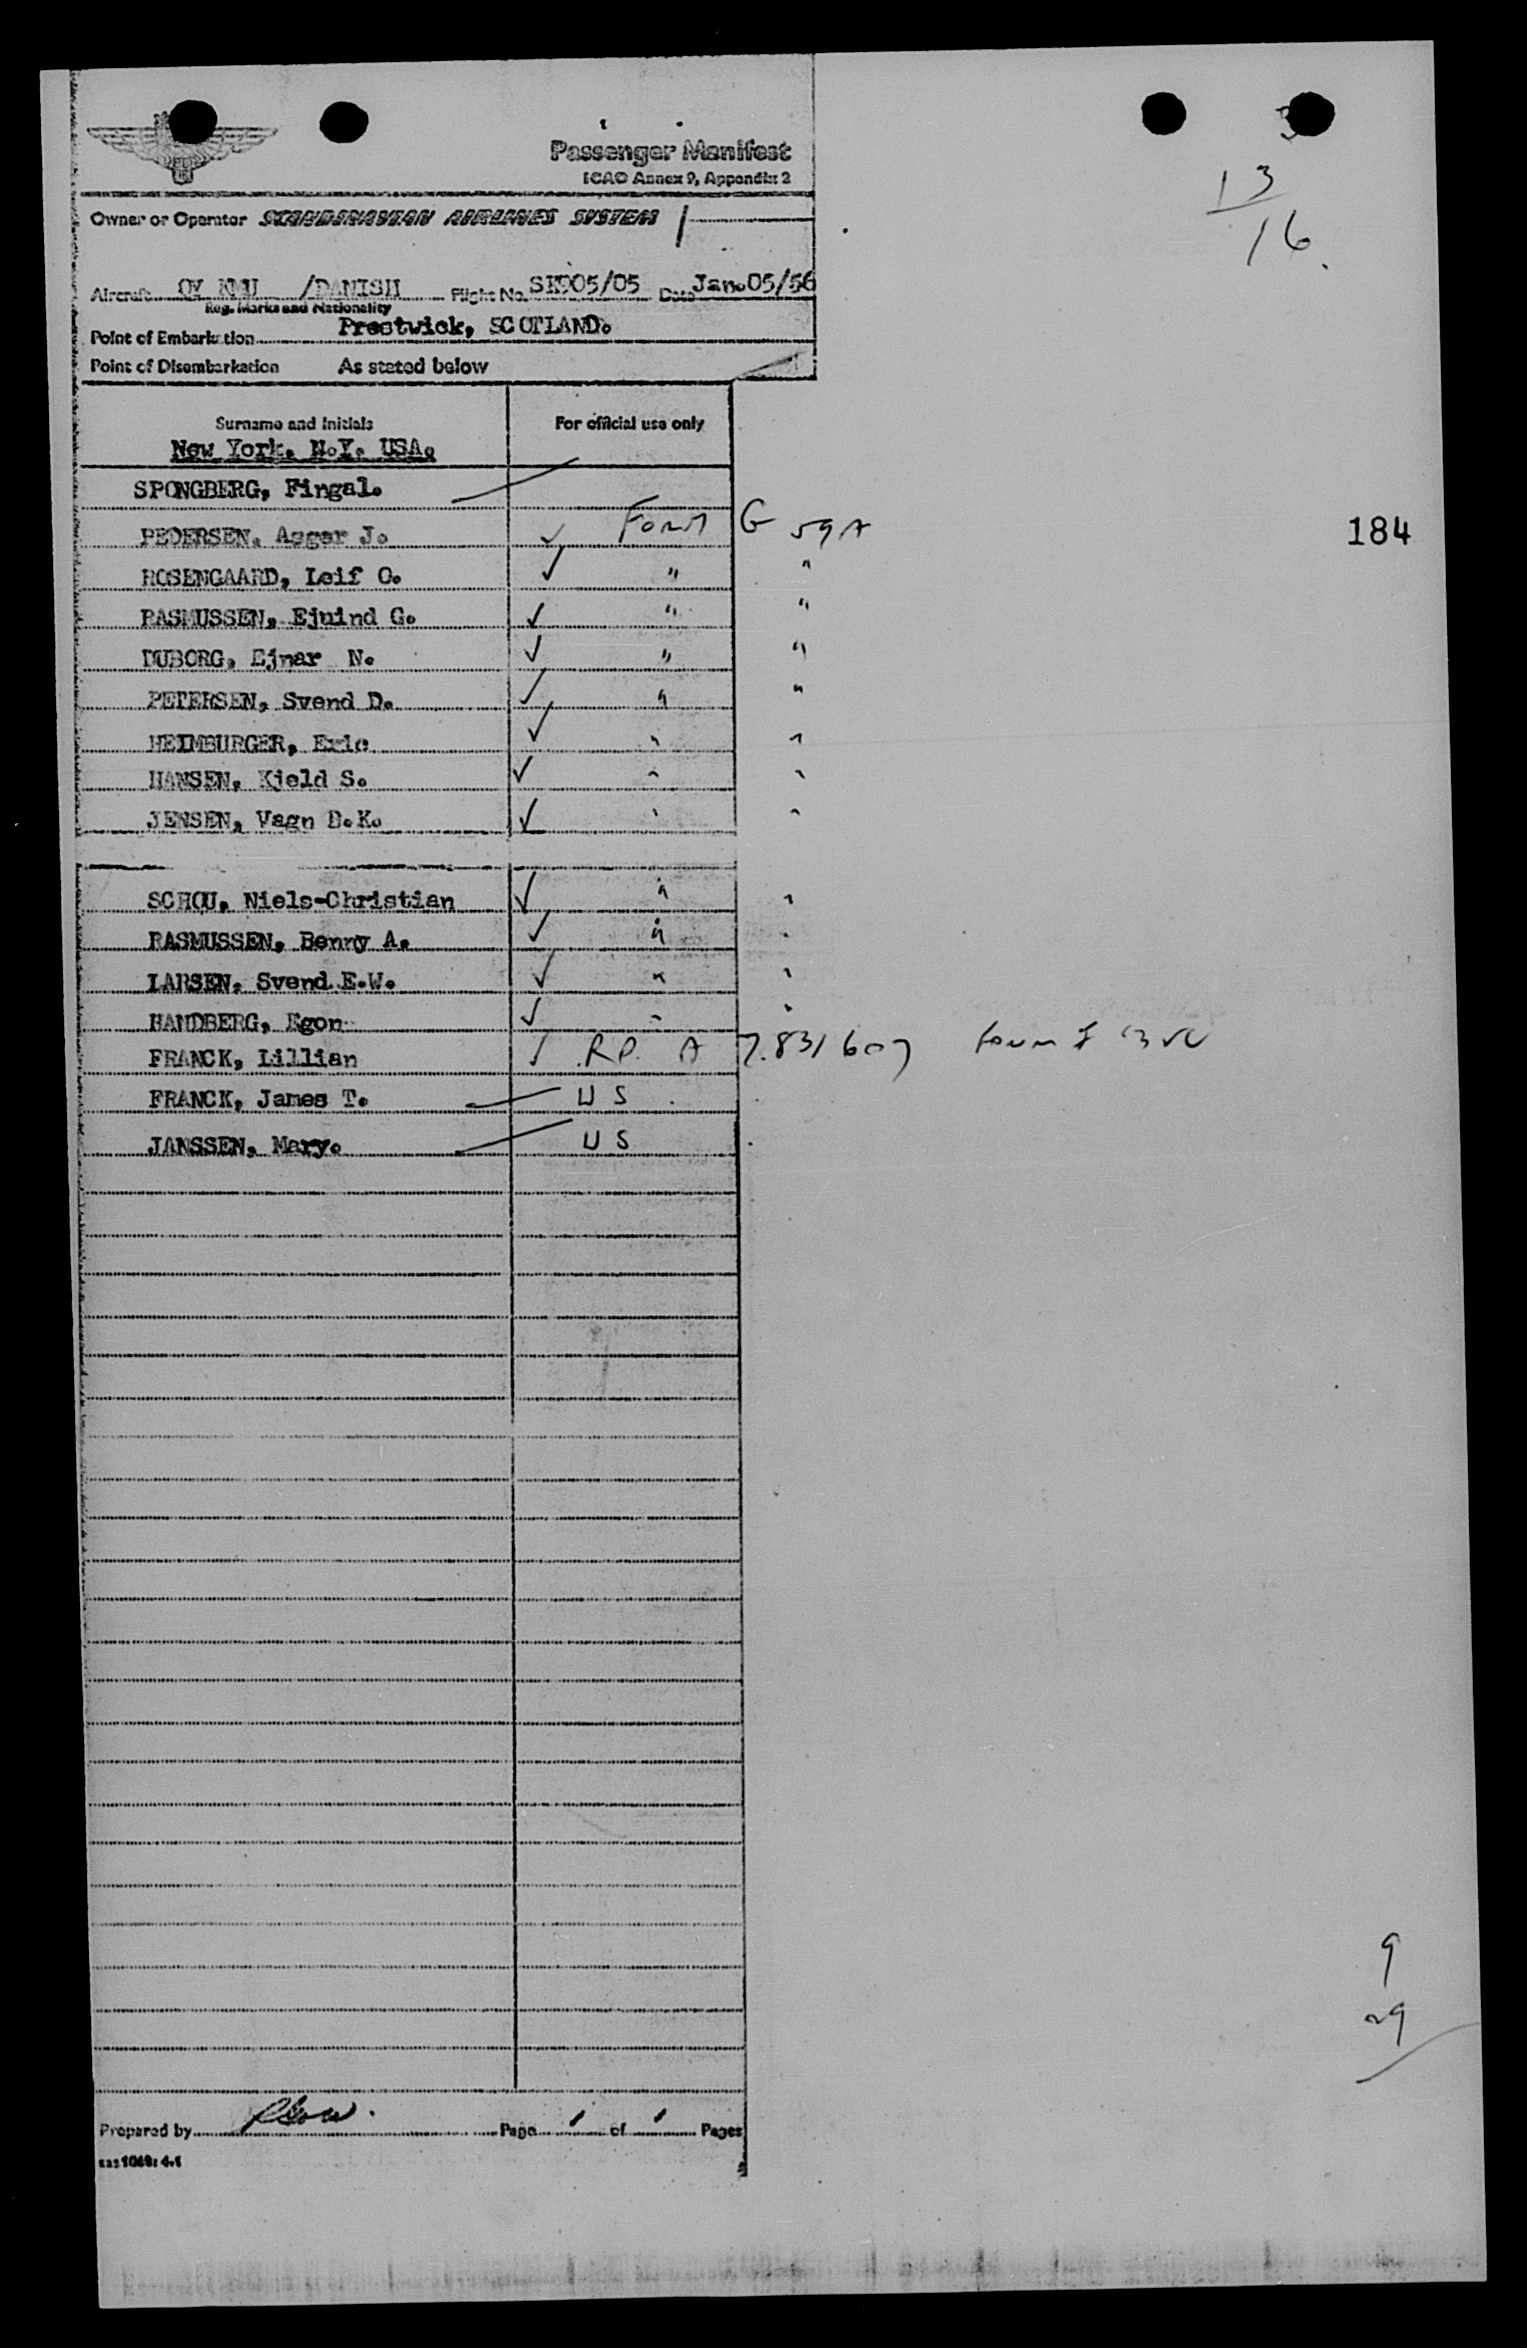 3
13
16
Passenger Manifest
ICAO Annex 9, Appendix 2
Owner or Operator SCANDINAVIAN AIRLINES SYSTEM
Aircraft OY KMU /DANISH Flight No. SK905/05 Date Jan.05/56
Reg. Marks and Nationality
Point of Embarkation Prestwick, SCOTLAND.
Point of Disembarkation As stated below
Surname and Initials For official use only
New York. N.Y. USA.
SPONGBERG, Fingal.
PEDERSEN, Asger J. ✓ Form G 59A
184
ROSENGAARD, Leif O. ✓ " "
RASMUSSEN, Ejuind G. ✓ " "
DUBORG, Ejnar N. ✓ " "
PETERSEN, Svend D. ✓ " "
HEIMBURGER, Eric ✓ " "
HANSEN, Kjeld S. ✓ " "
JENSEN, Vagn D.K. ✓ " "
SCHOU, Niels-Christian ✓ " "
RASMUSSEN, Benny A. ✓ " "
LARSEN, Svend E.W. ✓ " "
HANDBERG, Egon ✓ " "
FRANCK, Lillian ✓ R.P. A 7.831607
FRANCK, James T. US
JANSSEN, Mary. US
9
29
Prepared by Page 1 of 1 Pages